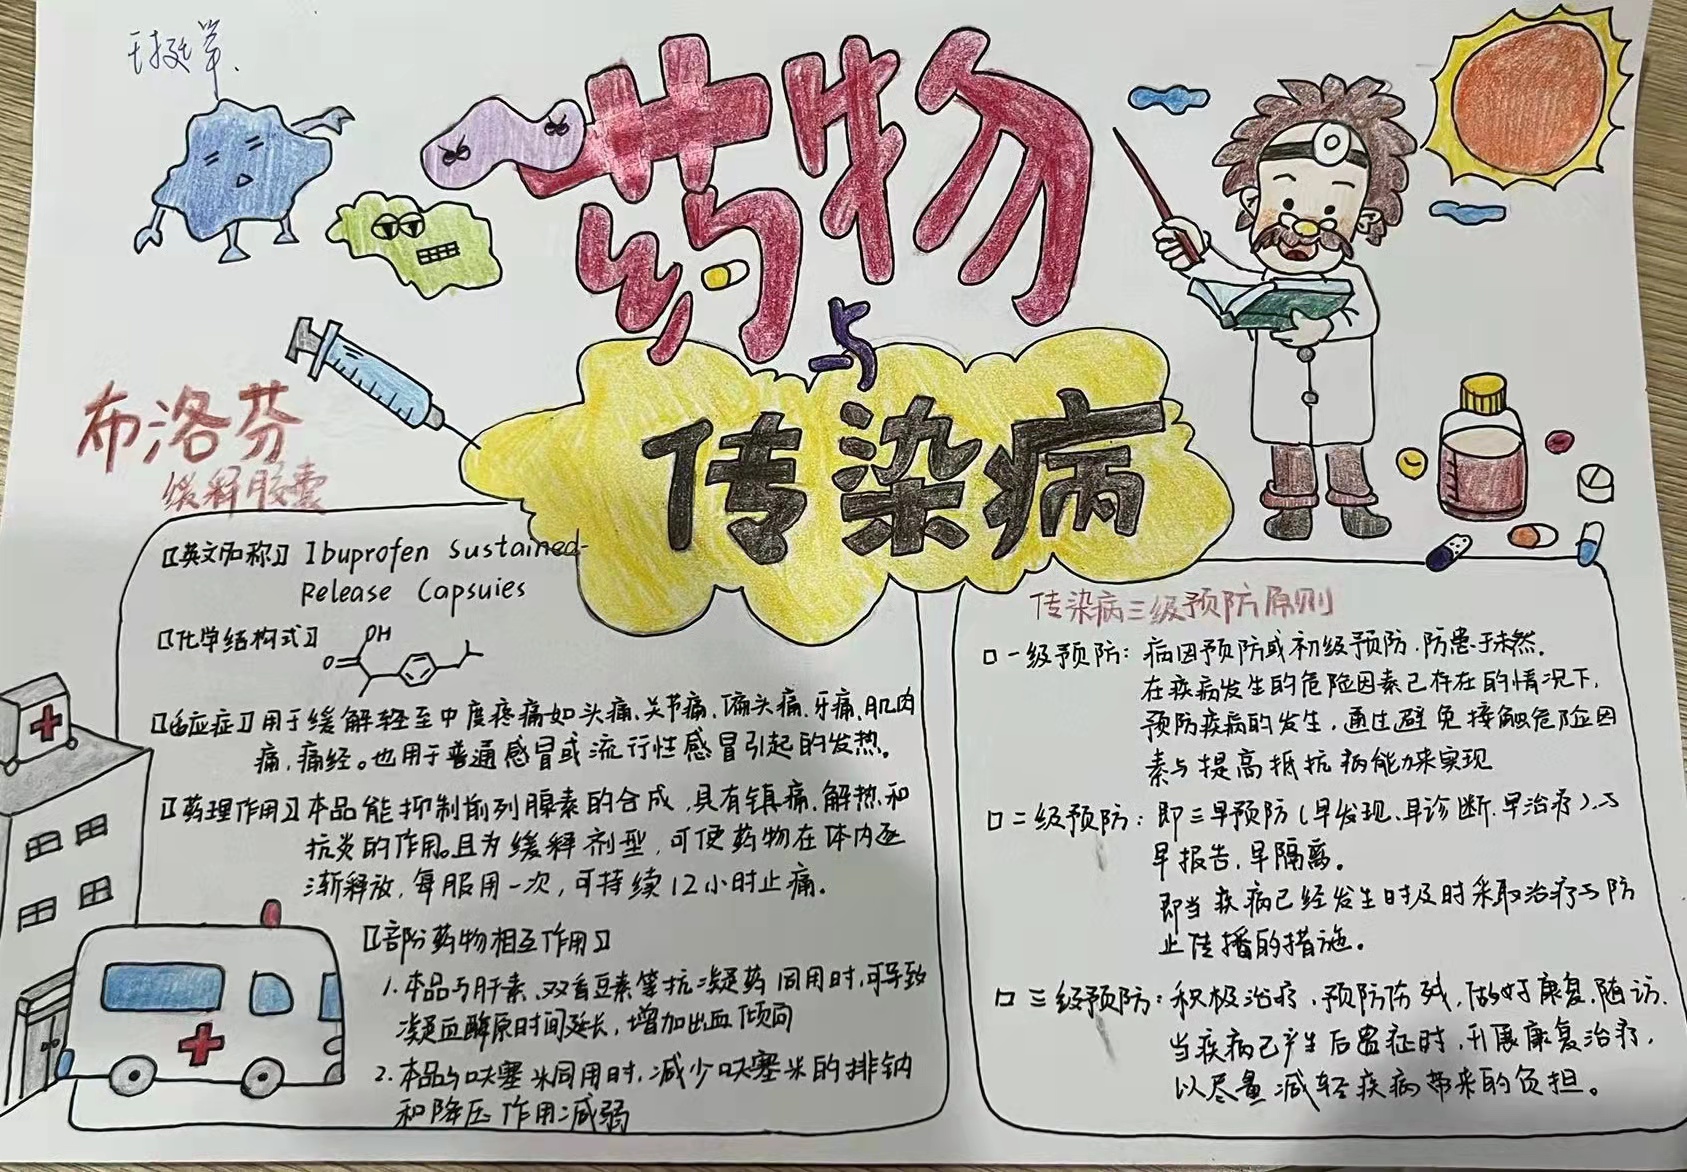 药物
与
传染病
布洛芬
缓释胶囊
【英文名称】Ibuprofen Sustained-
Release Capsuies
【化学结构式】
OH
O
【适应症】用于缓解轻至中度疼痛如头痛、关节痛、偏头痛、牙痛、肌肉
痛、痛经。也用于普通感冒或流行性感冒引起的发热。
【药理作用】本品能抑制前列腺素的合成,具有镇痛、解热和
抗炎的作用。且为缓释剂型,可使药物在体内逐
渐释放,每服用一次,可持续12小时止痛。
【部分药物相互作用】
1.本品与肝素、双香豆素等抗凝药同用时,可导致
凝血酶原时间延长,增加出血倾向
2.本品与呋塞米同用时,减少呋塞米的排钠
和降压作用减弱
传染病三级预防原则
口一级预防:病因预防或初级预防,防患于未然。
在疾病发生的危险因素已存在的情况下,
预防疾病的发生,通过避免接触危险因
素与提高抵抗病能力来实现
口二级预防:即三早预防(早发现、早诊断、早治疗)、与
早报告,早隔离。
即当疾病已经发生时及时采取治疗与防
止传播的措施。
口三级预防:积极治疗、预防伤残,做好康复,随访.
当疾病已产生后遗症时,开展康复治疗,
以尽量减轻疾病带来的负担。